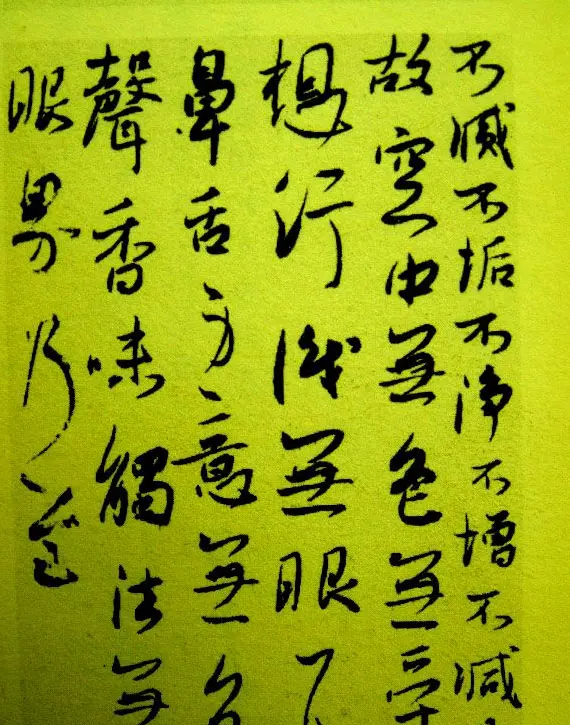 不滅不垢不淨不增不減
故空中無色無受
想行識無眼
鼻舌身意無色
聲香味觸法無
眼界乃至